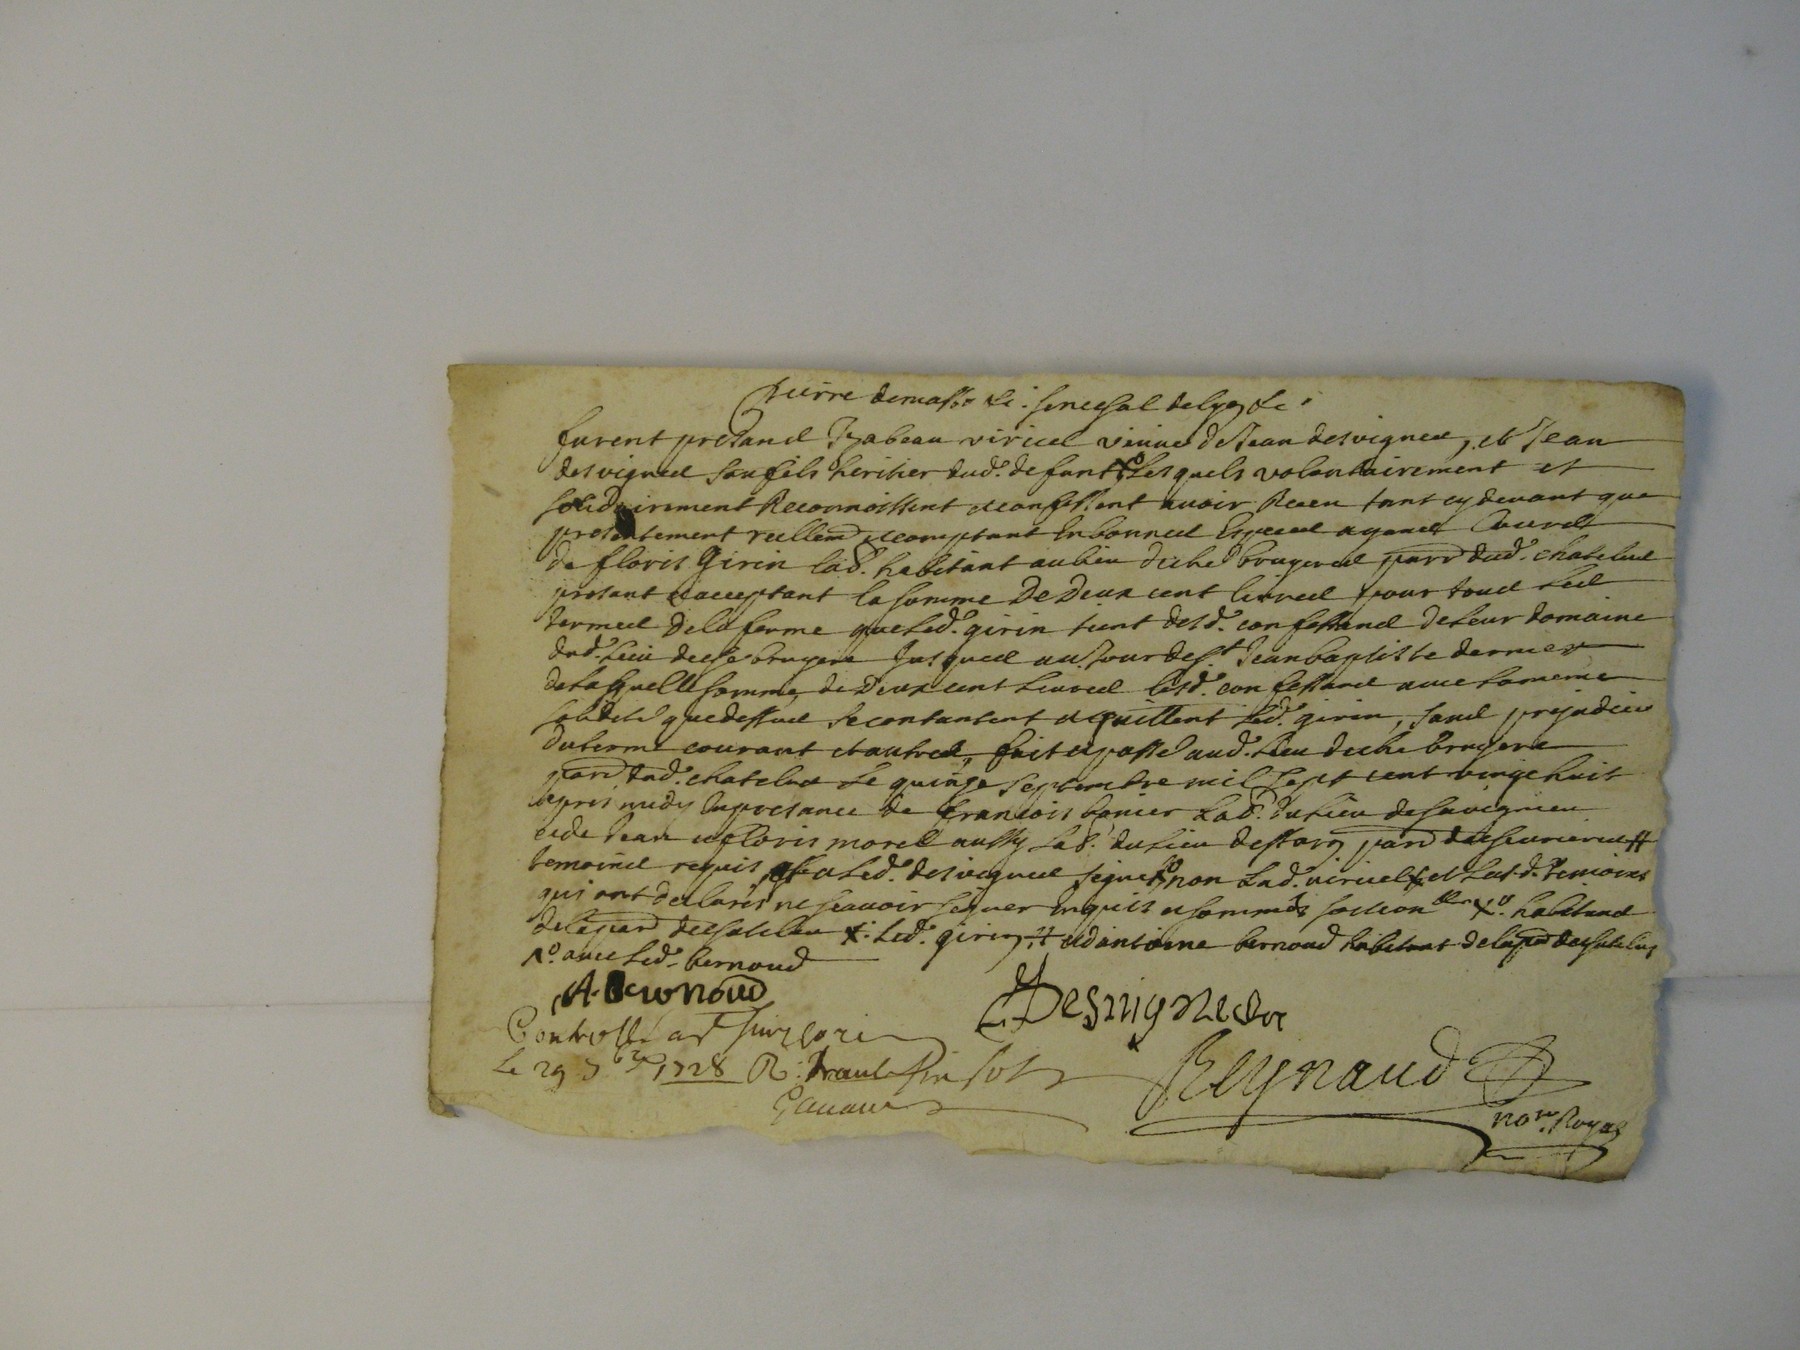 pierre demasso &c. senechal de lyon &c.
furent presand Izabeau viricel veuve de Jean desvigned, et Jean
desvigned son fils heritier dud. defunt x° Lesquels volontairement et
solidairement Reconnoissent et confessent avoir Receu tant cy devant que
presentement reellem et comptant En bonned Especed ayand Cours
de floris Girin lab. habitant au lieu de che bruyered parr dud. chatelud
presant et acceptant la somme De Deux cent livred pour toud Led
termed De la ferme que Led. girin tient desd. confessand de Leur domaine
dud. Lieu de che bruyere Jusqued au Jour de st Jean baptiste dernier
de Laquelle somme de Deux cent Livred Lesd. confessand avec La meme
solidité que dessud se contantent et quittent Led. girin, sand prejudice
du terme courant et autred, fait et passé aud. Lieu de che bruyere
parr dud. chatelud Le quinze septembre mil sept cent vingt huit
apres midy En presance de francois banier Lab. du Lieu de savigneu
et de Jean et floris morel aussy Lab. du Lieu de parr de
temoind requis Led. desvigned signe x° non Lad. viricel x et Lesd. temoins
qui ont declarés ne scavoir signer enquis et sommés x° habitand
de la parr de chatelus x. Led. girin, # et d'antoine bernoud habitant de la parr de chatelus
x° avec Led. bernoud
A. Bernoud
Desvignes
Controllé a st simphorien
Le 29 7bre 1728 R. sols
Reynaud
nore. Royal